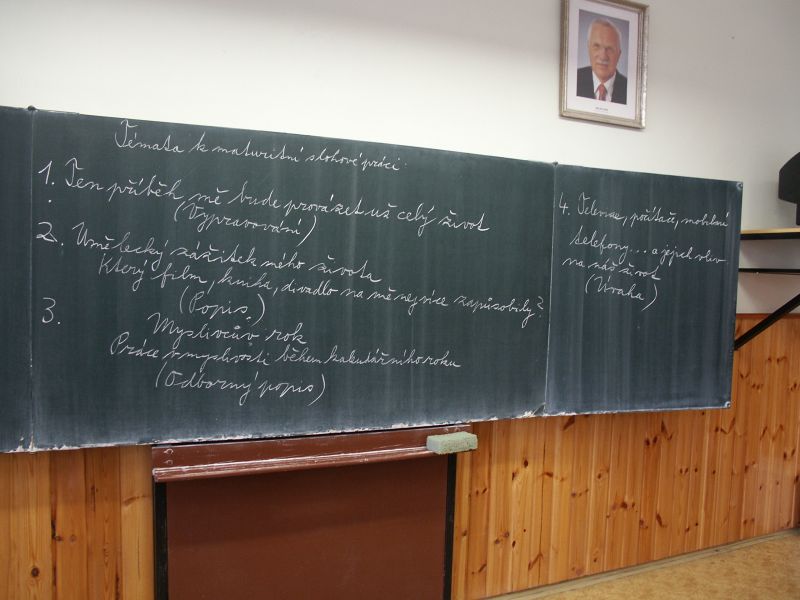 Témata k maturitní slohové práci:
1. Ten příběh mě bude provázet už celý život
(Vypravování)
2. Umělecký zážitek mého života
Který film, kniha, divadlo na mě nejvíce zapůsobily?
(Popis)
3. Myslivcův rok
Práce v myslivosti během kalendářního roku
(Odborný popis)
4. Televize, počítače, mobilní
telefony... a jejich vliv
na náš život
(Úvaha)